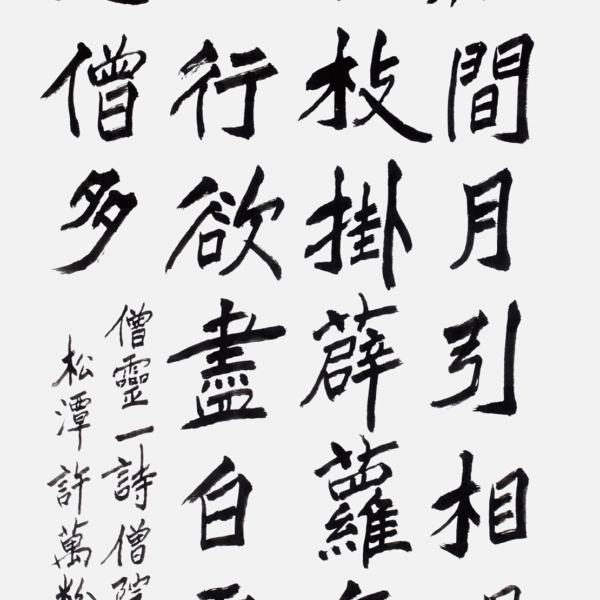 間月引相
枝掛薜蘿
行欲盡白
僧多
僧靈一詩僧院
松潭許萬